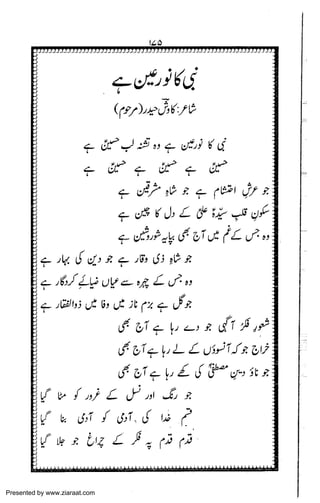 ۱۷۵
نبیؐ کا نورِ عین ہے
شاعر: کاوشؔ حیدر (مرحوم)
نبیؐ کا نورِ عین ہے وہ تشنہ لب حسینؑ ہے
حسینؑ ہے حسینؑ ہے حسینؑ ہے
جو عرش احتشام ہے جو شاہِ مشرقین ہے
سکونِ قلبِ سیّدہؑ علیؑ کے دل کا چین ہے
وہ جس کے غم میں آج بھی بپا یہ شور و شین ہے
جو شاہِ ذی وقار ہے جو دین کی بہار ہے
وہ جس کے چہرہ سے عیاں ضیائے کردگار ہے
جو گل ہے بزمِ ناز میں وغا میں ذوالفقار ہے
شعورِ فکرِ آگہی جو دے رہا ہے آج بھی
خراج جو کہ آنسوؤں کے لے رہا ہے آج بھی
جو ناؤ دینِ مصطفیٰؐ کی کھے رہا ہے آج بھی
جو رنگ اور نسل کے غرور کو مٹا گیا
قسم خدا کی آدمی کو آدمی بنا گیا
قدم قدم پہ فکر کے چراغ جو جلا گیا
Presented by www.ziaraat.com